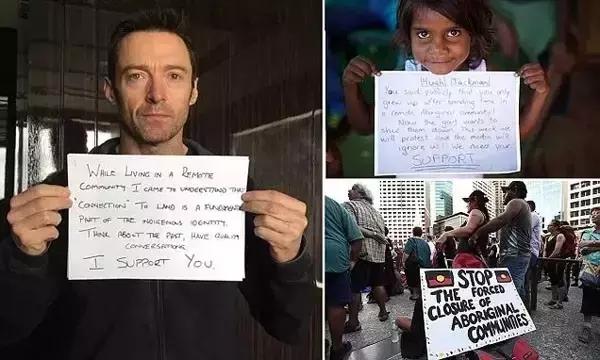 WHILE LIVING IN A REMOTE
COMMUNITY I CAME TO UNDERSTAND THAT
"CONNECTION" TO LAND IS A FUNDAMENTAL
PART OF THE INDIGENOUS IDENTITY.
THINK ABOUT THE PAST, HAVE QUALITY
CONVERSATIONS
I SUPPORT YOU.
Hugh Jackman!
You said publicly that you only
grew up after spending time in
a remote Aboriginal community!
Now the gov't wants to
shut them down. This week we
will protest and the media will
ignore us! We need your
SUPPORT
STOP
THE FORCED
CLOSURE OF
ABORIGINAL
COMMUNITIES